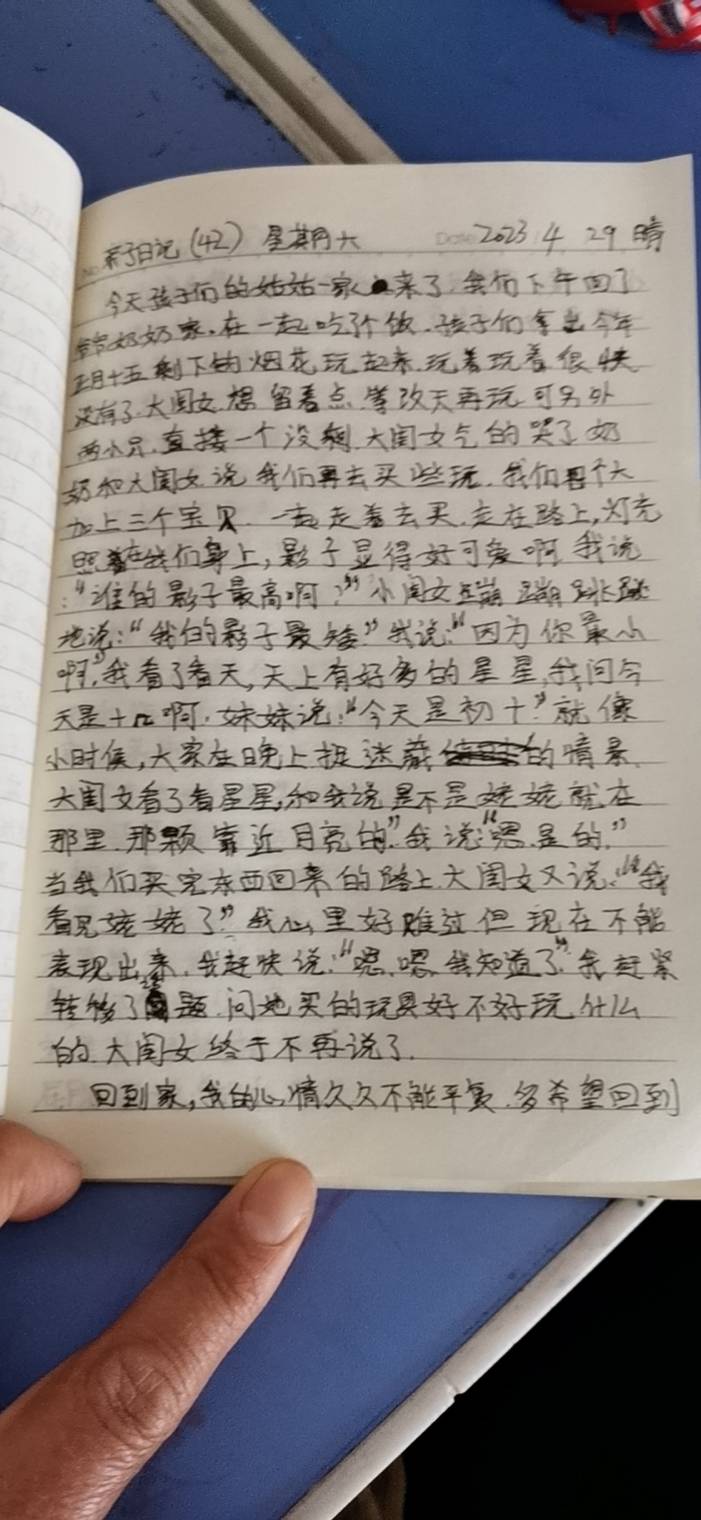 亲子日记(42) 星期六 Date 2023 4 29 晴
今天孩子们的姑姑一家来了.我们下午回了
奶奶家.在一起吃了个饭.孩子们拿出今年
正月十五剩下的烟花玩起来.玩着玩着很快
没有了.大闺女想留着点.等改天再玩.可另外
两小只.直接一个没剩.大闺女气的哭了.奶
奶和大闺女说我们再去买些玩.我们四个大
加上三个宝贝.一起走着去买.走在路上,灯光
照在我们身上,影子显得好可爱啊.我说
:“谁的影子最高啊?”小闺女蹦蹦跳跳
地说:“我的影子最矮.”我说:“因为你最小
啊.”我看了看天,天上有好多的星星,我问今
天是十几啊.妹妹说:“今天是初十.”就像
小时候,大家在晚上捉迷藏的情景.
大闺女看了看星星,和我说是不是姥姥就在
那里.那颗靠近月亮的.”我说:“嗯.是的.”
当我们买完东西回来的路上.大闺女又说:“我
看见姥姥了.”我心里好难过.但现在不能
表现出来.我赶快说:“嗯.嗯.我知道了.”我赶紧
转移了话题.问她买的玩具好不好玩.什么
的.大闺女终于不再说了.
回到家,我的心情久久不能平复.多希望回到